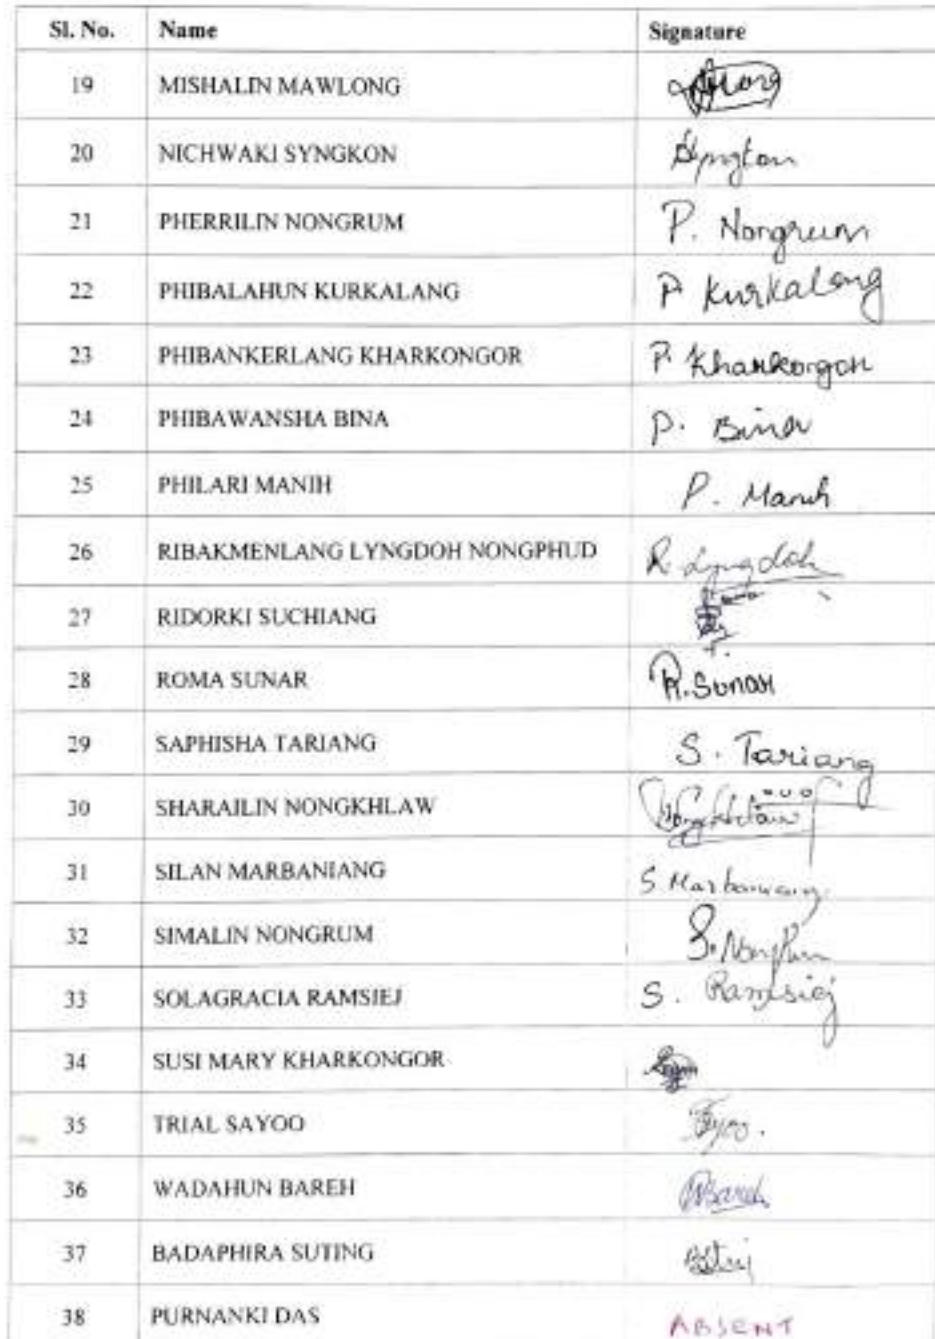 Sl. No. Name Signature
19 MISHALIN MAWLONG
20 NICHWAKI SYNGKON Syngkon
21 PHERRILIN NONGRUM P. Nongrum
22 PHIBALAHUN KURKALANG P. Kurkalang
23 PHIBANKERLANG KHARKONGOR P. Kharkongor
24 PHIBAWANSHA BINA P. Bina
25 PHILARI MANIH P. Manih
26 RIBAKMENLANG LYNGDOH NONGPHUD R. Lyngdoh
27 RIDORKI SUCHIANG
28 ROMA SUNAR R. Sunar
29 SAPHISHA TARIANG S. Tariang
30 SHARAILIN NONGKHLAW Nongkhlaw
31 SILAN MARBANIANG S. Marbaniang
32 SIMALIN NONGRUM S. Nongrum
33 SOLAGRACIA RAMSIEJ S. Ramsiej
34 SUSI MARY KHARKONGOR
35 TRIAL SAYOO
36 WADAHUN BAREH WBareh
37 BADAPHIRA SUTING
38 PURNANKI DAS ABSENT